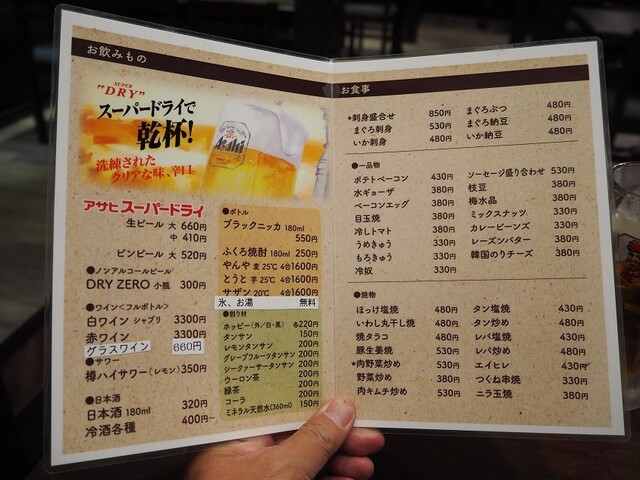 お飲みもの
SUPER
"DRY"
スーパードライで
乾杯!
洗練された
クリアな味、辛口
Asahi
アサヒスーパードライ
生ビール 大 660円
中 410円
ビンビール 大 520円
●ノンアルコールビール
DRY ZERO 小瓶 300円
●ワイン<フルボトル>
白ワイン シャブリ 3300円
赤ワイン 3300円
グラスワイン 660円
●サワー
樽ハイサワー(レモン) 350円
●日本酒
日本酒 180ml 320円
冷酒各種 400円~
●ボトル
ブラックニッカ 180ml
550円
ふくろ焼酎 180ml 250円
やんや 麦25℃ 4合1600円
とうと 芋25℃ 4合1600円
サザン 20℃ 4合1600円
氷、お湯 無料
●割り材
ホッピー(外/白・黒) 各220円
タンサン 150円
レモンタンサン 200円
グレープフルーツタンサン 200円
シークァーサータンサン 200円
ウーロン茶 200円
緑茶 200円
コーラ 200円
ミネラル天然水(360ml) 150円
お食事
*刺身盛合せ 850円
まぐろ刺身 530円
いか刺身 480円
まぐろぶつ 480円
まぐろ納豆 480円
いか納豆 480円
●一品物
ポテトベーコン 430円
水ギョーザ 380円
ベーコンエッグ 380円
目玉焼 380円
冷しトマト 380円
うめきゅう 330円
もろきゅう 330円
冷奴 330円
ソーセージ盛り合わせ 530円
枝豆 380円
梅水晶 380円
ミックスナッツ 330円
カレービーンズ 330円
レーズンバター 380円
韓国のりチーズ 380円
●焼物
ほっけ塩焼 480円
いわし丸干し焼 480円
焼タラコ 480円
豚生姜焼 530円
*肉野菜炒め 530円
野菜炒め 380円
肉キムチ炒め 530円
タン塩焼 430円
タン炒め 480円
レバ塩焼 430円
レバ炒め 480円
エイヒレ 430円
つくね串焼 330円
ニラ玉焼 380円